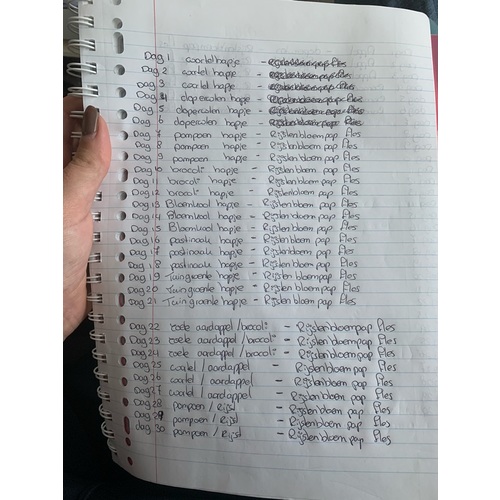 Dag 1 wortel hapje - fles
Dag 2 wortel hapje - fles
Dag 3 wortel hapje - fles
Dag 4 doperwten hapje - fles
Dag 5 doperwten hapje - fles
Dag 6 doperwten hapje - fles
Dag 7 pompoen hapje - Rijstenbloem pap fles
Dag 8 pompoen hapje - Rijstenbloem pap fles
Dag 9 pompoen hapje - Rijstenbloem pap fles
Dag 10 brocoli hapje - Rijstenbloem pap fles
Dag 11 brocoli hapje - Rijstenbloem pap fles
Dag 12 brocoli hapje - Rijstenbloem pap fles
Dag 13 Bloemkool hapje - Rijstenbloem pap fles
Dag 14 Bloemkool hapje - Rijstenbloem pap fles
Dag 15 Bloemkool hapje - Rijstenbloem pap fles
Dag 16 pastinaak hapje - Rijstenbloem pap fles
Dag 17 pastinaak hapje - Rijstenbloem pap fles
Dag 18 pastinaak hapje - Rijstenbloem pap fles
Dag 19 Tuingroente hapje - Rijstenbloem pap fles
Dag 20 Tuingroente hapje - Rijstenbloem pap fles
Dag 21 Tuingroente hapje - Rijstenbloem pap fles
Dag 22 zoete aardappel / brocoli - Rijstenbloempap fles
Dag 23 zoete aardappel / brocoli - Rijstenbloempap fles
Dag 24 zoete aardappel / brocoli - Rijstenbloempap fles
Dag 25 wortel / aardappel - Rijstenbloempap fles
Dag 26 wortel / aardappel - Rijstenbloem pap fles
Dag 27 wortel / aardappel - Rijstenbloem pap fles
Dag 28 pompoen / Rijst - Rijstenbloem pap fles
Dag 29 pompoen / Rijst - Rijstenbloem pap fles
dag 30 pompoen / Rijst - Rijstenbloem pap fles